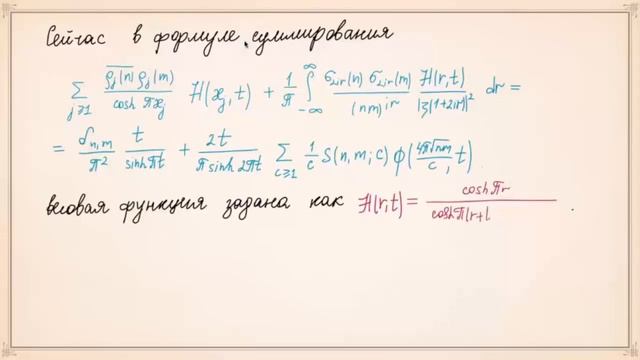 Сейчас в формуле суммирования
∑_{j≥1} \overline{ρ_j(n)} ρ_j(m) / cosh πϰ_j H(ϰ_j, t) + 1/π ∫_{-∞}^{∞} σ_{2ir}(n) σ_{2ir}(m) / (nm)^{ir} H(r,t) / |ζ(1+2ir)|² dr =
= δ_{n,m}/π² t/sinh πt + 2t/(π sinh 2πt) ∑_{c≥1} 1/c S(n,m;c) ϕ(4π√nm/c, t)
весовая функция задана как H(r,t) = cosh πr / cosh π(r+t .